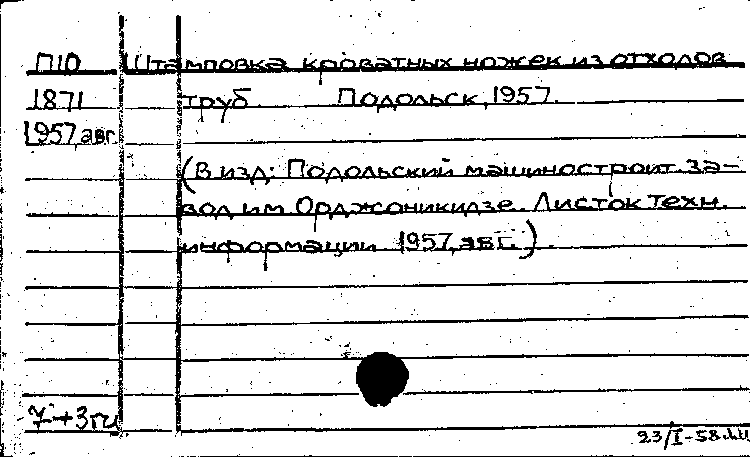 П10 Штамповка кроватных ножек из отходов
1871 труб Подольск, 1957.
1957, авг.
(В изд: Подольский машиностроит. за-
вод им Орджоникидзе. Листок техн.
информации 1957, авг.).
23/I-58